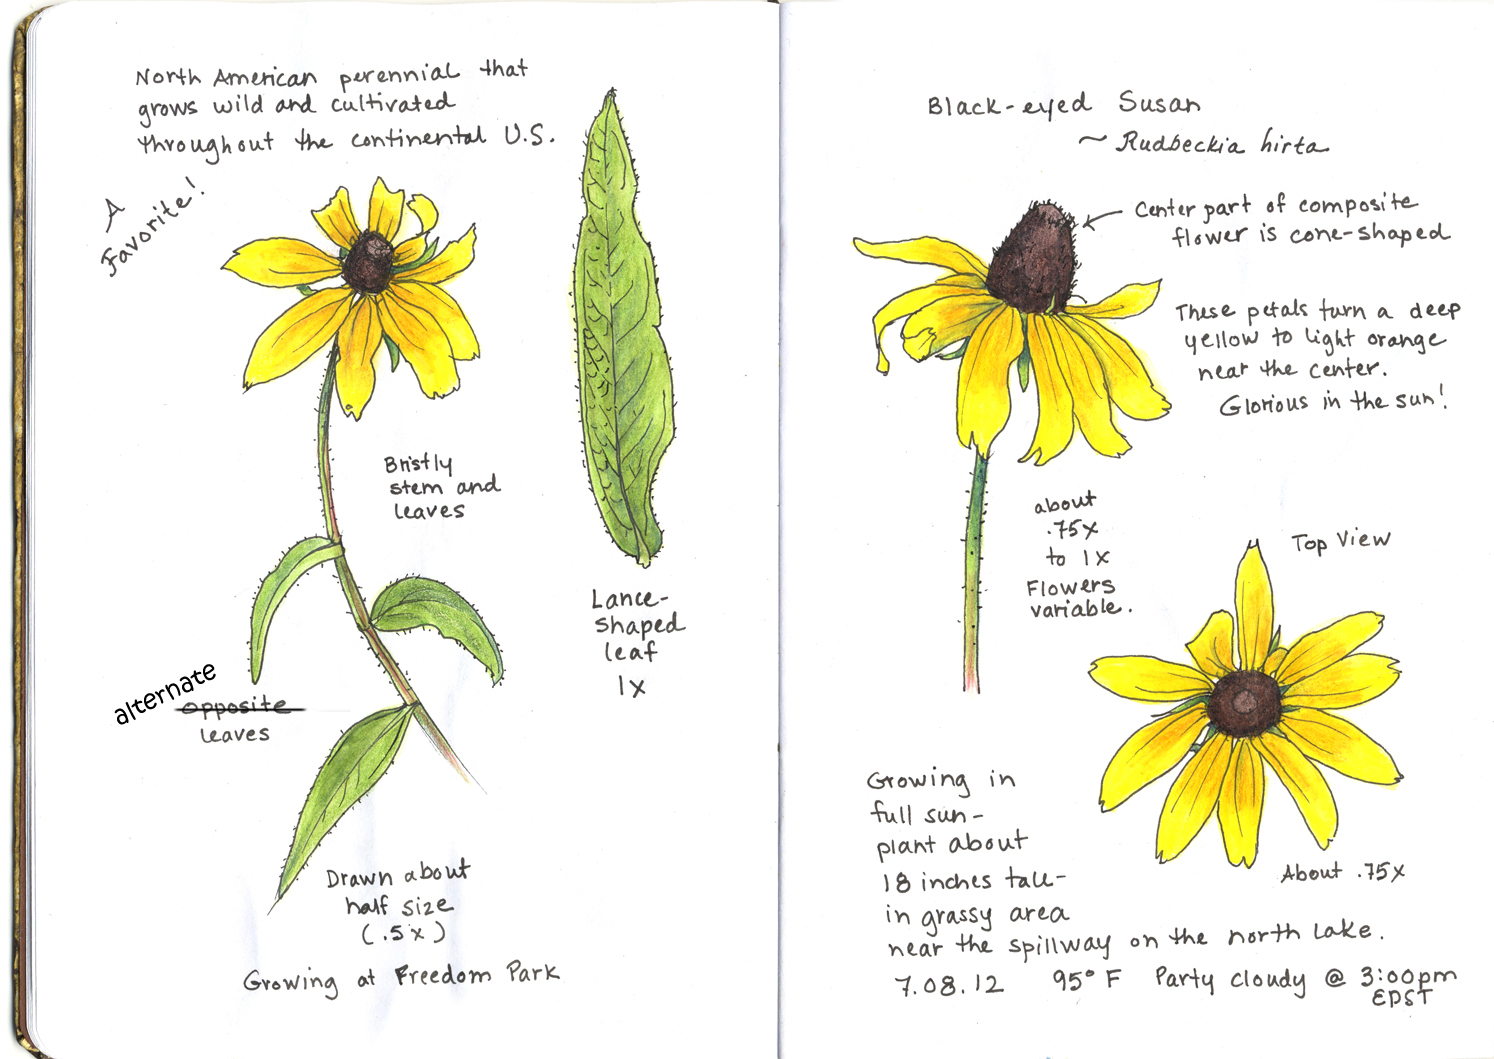 North American perennial that
grows wild and cultivated
throughout the continental U.S.
A
Favorite!
Bristly
stem and
leaves
Lance-
shaped
leaf
1x
alternate
opposite
leaves
Drawn about
half size
(.5x)
Growing at Freedom Park
Black-eyed Susan
~ Rudbeckia hirta
Center part of composite
flower is cone-shaped
These petals turn a deep
yellow to light orange
near the center.
Glorious in the sun!
about
.75x
to 1x
Flowers
variable.
Top View
About .75x
Growing in
full sun-
plant about
18 inches tall-
in grassy area
near the spillway on the north lake.
7.08.12 95° F Party cloudy @ 3:00pm
EPST